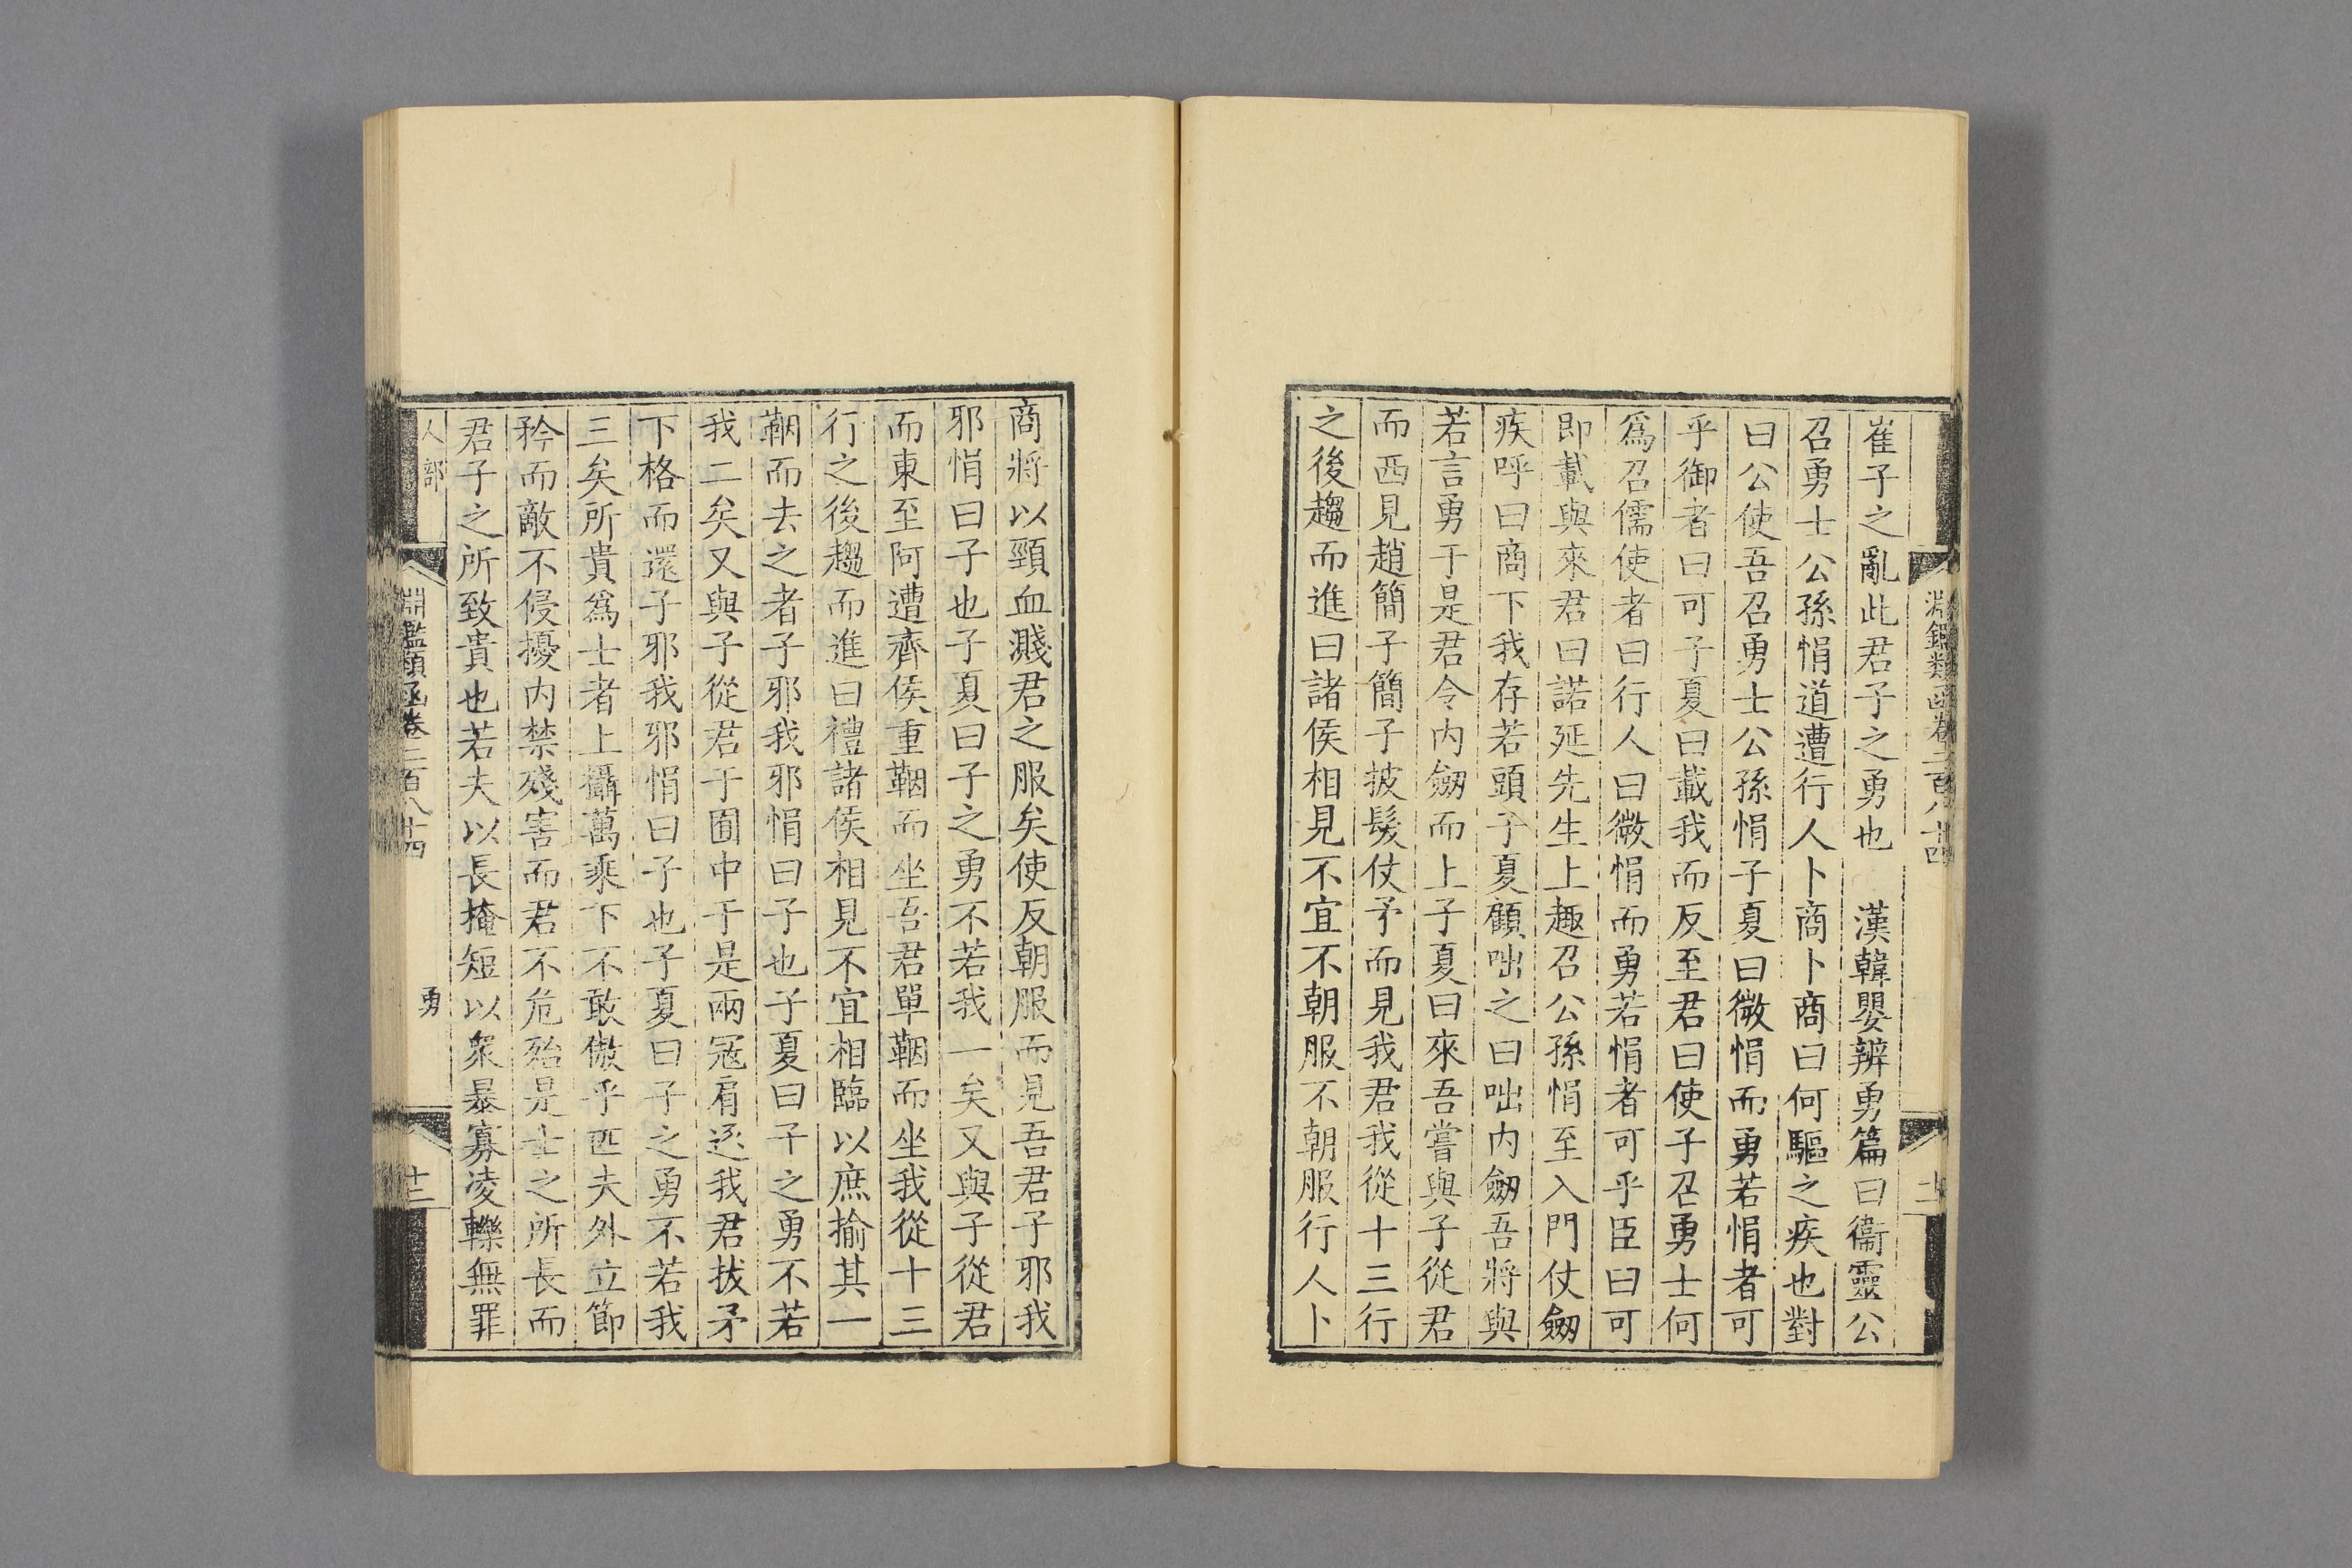 淵鑑類函卷二百八十四
崔子之亂此君子之勇也　漢韓嬰辨勇篇曰衞靈公
召勇士公孫悁道遭行人卜商卜商曰何驅之疾也對
曰公使吾召勇士公孫悁子夏曰微悁而勇若悁者可
乎御者曰可子夏曰載我而反至君曰使子召勇士何
爲召儒使者曰行人曰微悁而勇若悁者可乎臣曰可
即載與來君曰諾延先生上趣召公孫悁至入門仗劒
疾呼曰商下我存若頭子夏顧咄之曰咄内劒吾將與
若言勇于是君令内劒而上子夏曰來吾嘗與子從君
而西見趙簡子簡子披髮仗矛而見我君我從十三行
之後趨而進曰諸侯相見不宜不朝服不朝服行人卜
商將以頸血濺君之服矣使反朝服而見吾君子邪我
邪悁曰子也子夏曰子之勇不若我一矣又與子從君
而東至阿遭齊侯重鞇而坐吾君單鞇而坐我從十三
行之後趨而進曰禮諸侯相見不宜相臨以庶揄其一
鞇而去之者子邪我邪悁曰子也子夏曰子之勇不若
我二矣又與子從君于囿中于是兩寇肩逐我君拔矛
下格而還子邪我邪悁曰子也子夏曰子之勇不若我
三矣所貴爲士者上攝萬乘下不敢傲乎匹夫外立節
矜而敵不侵擾内禁殘害而君不危殆是士之所長而
君子之所致貴也若夫以長掩短以衆暴寡凌轢無罪
人部
淵鑑類函卷二百八十四
勇
十三